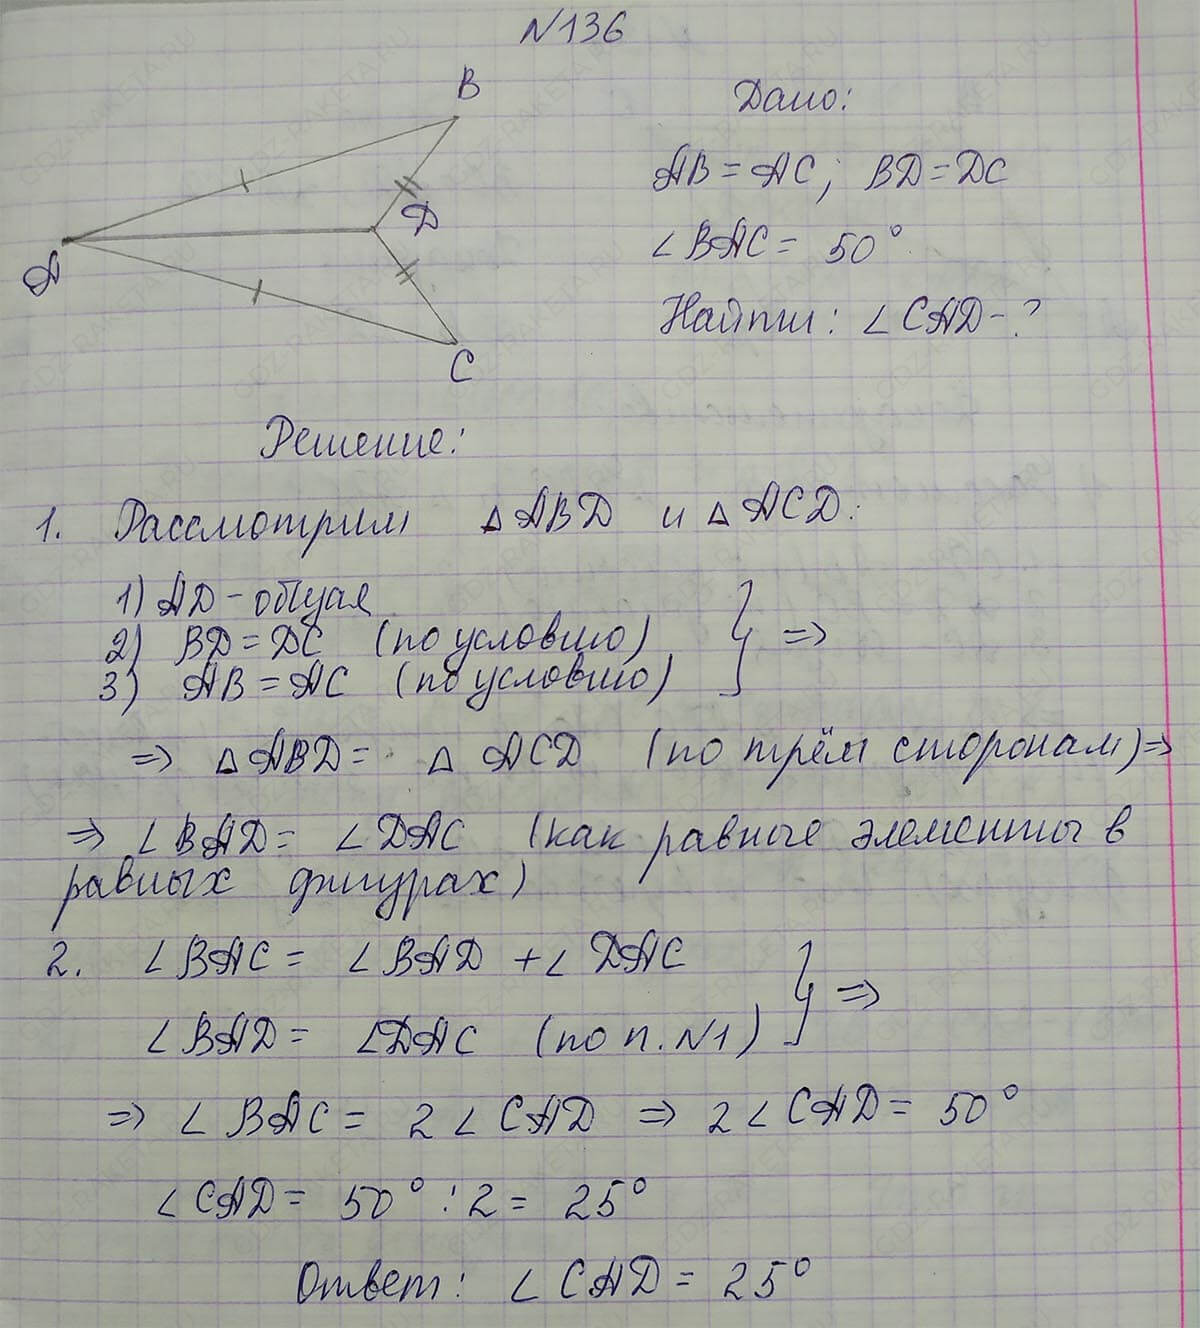 №136
B
Дано:
AB = AC; BD = DC
Д
∠BAC = 50°
A
Найти: ∠CAD - ?
C
Решение:
1. Рассмотрим △ABD и △ACD:
1) AD - общая
2) BD = DC (по условию)
3) AB = AC (по условию)
} =>
=> △ABD = △ACD (по трём сторонам) =>
=> ∠BAD = ∠DAC (как равные элементы в
равных фигурах)
2. ∠BAC = ∠BAD + ∠DAC
∠BAD = ∠DAC (по п. №1)
} =>
=> ∠BAC = 2∠CAD => 2∠CAD = 50°
∠CAD = 50° : 2 = 25°
Ответ: ∠CAD = 25°
GDZ-RAKETA.RU